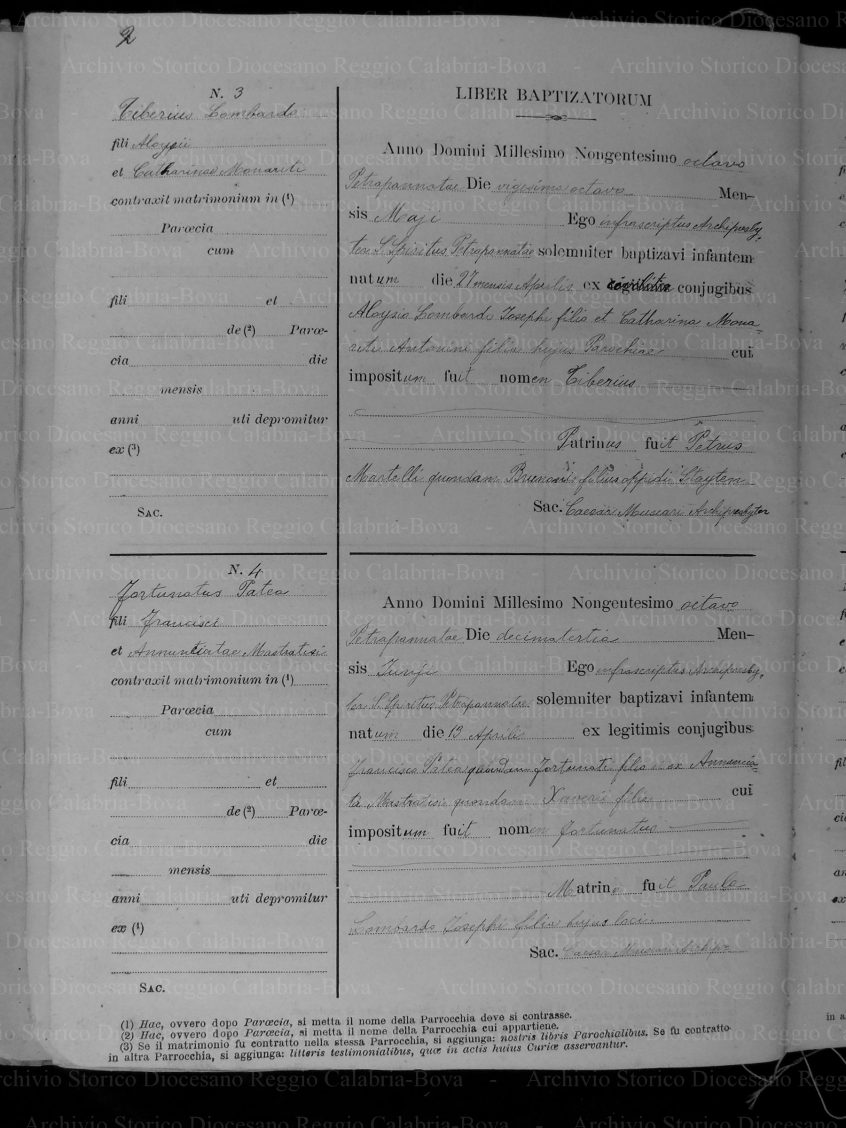 2
N. 3
Tiberius Lombardo
fili Aloysii
et Catharinae Monariti
contraxit matrimonium in (¹)
Parœcia
cum
fili et
de (²) Parœ-
cia die
mensis
anni uti depromitur
ex (³)
SAC.
N. 4
Fortunatus Patea
fili Francisci
et Annuntiatae Mastratisi
contraxit matrimonium in (¹)
Parœcia
cum
fili et
de (²) Parœ-
cia die
mensis
anni uti depromitur
ex (¹)
SAC.
LIBER BAPTIZATORUM
Anno Domini Millesimo Nongentesimo octavo
Petrapannatae Die vigesimo octavo Men-
sis Maji Ego infrascriptus Archipresby,
ter S. Spiritus Petrapannatae solemniter baptizavi infantem
natum die 27 mensis Aprilis ex conjugibus
Aloysio Lombardo Josephi filio et Catharina Mona-
riti Antonini filia hujus Parochiae cui
impositum fuit nomen Tiberius
Patrinus fuit Petrus
Martelli quondam filius oppidi Stayten
Sac. Caesar Museari Archipresbyter
Anno Domini Millesimo Nongentesimo octavo
Petrapannatae Die decimatertia Men-
sis Junji Ego infrascriptus Archipresby,
ter S. Spiritus Petrapannatae solemniter baptizavi infantem
natum die 13 Aprilis ex legitimis conjugibus
Francisco Patea quondam Fortunati filio et ex Annuncia
ta Mastratisi quondam Xaverii filia cui
impositum fuit nomen Fortunatus
Matrina fuit Paula
Lombardo Josephi filia hujus loci
Sac. Caesar Museari Archip
(1) Hac, ovvero dopo Parœcia, si metta il nome della Parrocchia dove si contrasse.
(2) Hac, ovvero dopo Parœcia, si metta il nome della Parrocchia cui appartiene.
(3) Se il matrimonio fu contratto nella stessa Parrocchia, si aggiunga: nostris libris Parochialibus. Se fu contratto
in altra Parrocchia, si aggiunga: litteris testimonialibus, quæ in actis huius Curiæ asservantur.
Archivio Storico Diocesano Reggio Calabria-Bova